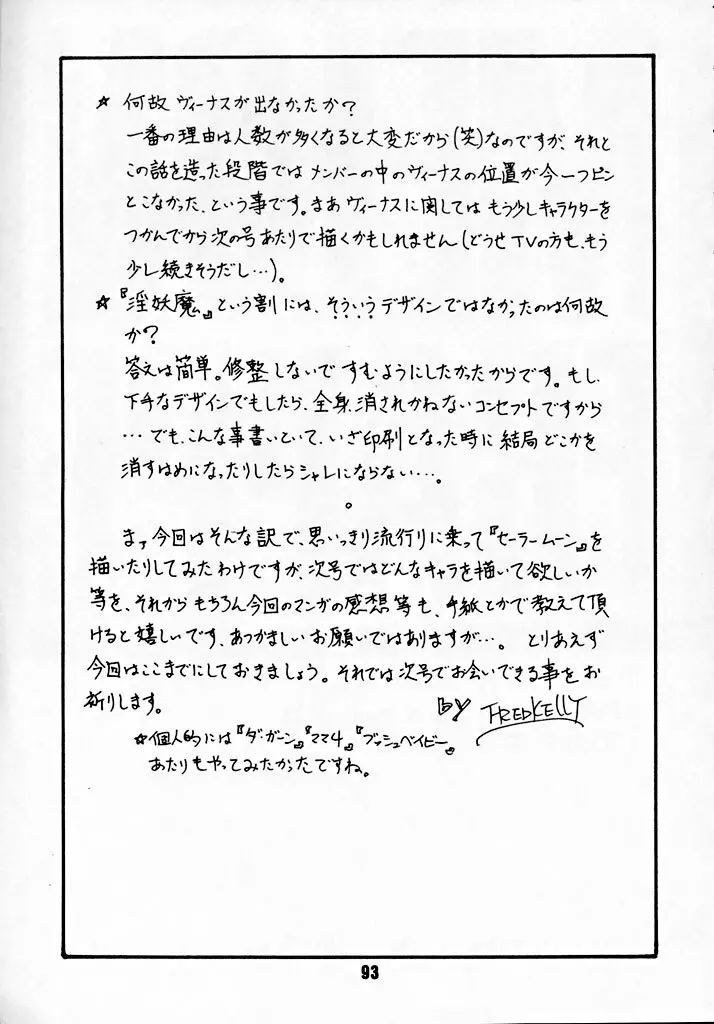 ☆ 何故ヴィーナスが出なかったか?
一番の理由は人数が多くなると大変だから(笑)なのですが、それと
この話を造った段階ではメンバーの中のヴィーナスの位置が今一つピン
とこなかった、という事です。まあヴィーナスに関してはもう少しキャラクターを
つかんでから次の号あたりで描くかもしれません(どうせTVの方も、もう
少し続きそうだし…)。
☆『淫妖魔』という割には、そういうデザインではなかったのは何故
か?
答えは簡単。修整しないですむようにしたかったからです。もし、
下手なデザインでもしたら、全身、消されかねないコンセプトですから
…でも、こんな事書いといて、いざ印刷となった時に結局どこかを
消すはめになったりしたらシャレにならない…。
。
まァ今回はそんな訳で、思いっきり流行りに乗って『セーラームーン』を
描いたりしてみたわけですが、次号ではどんなキャラを描いて欲しいか
等を、それからもちろん今回のマンガの感想等も、手紙とかで教えて頂
けると嬉しいです、あつかましいお願いではありますが…。とりあえず
今回はここまでにしておきましょう。それでは次号でお会いできる事をお
祈りします。
BY FREDKELLY
☆個人的には『ダ・ガーン』『ママ4』『ブッシュベイビー』
あたりもやってみたかったですね。
93